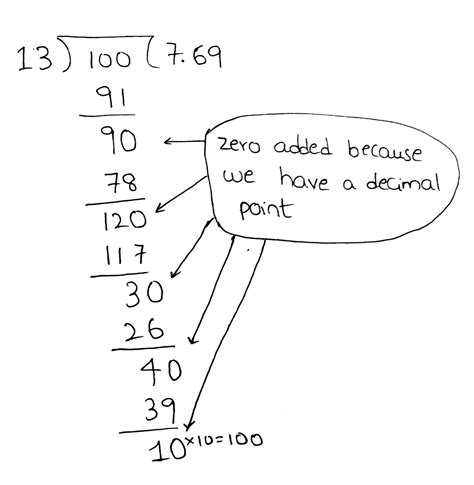 13) 100 (7.69
91
90
zero added because
we have a decimal
point
78
120
117
30
26
40
39
10 ×10=100